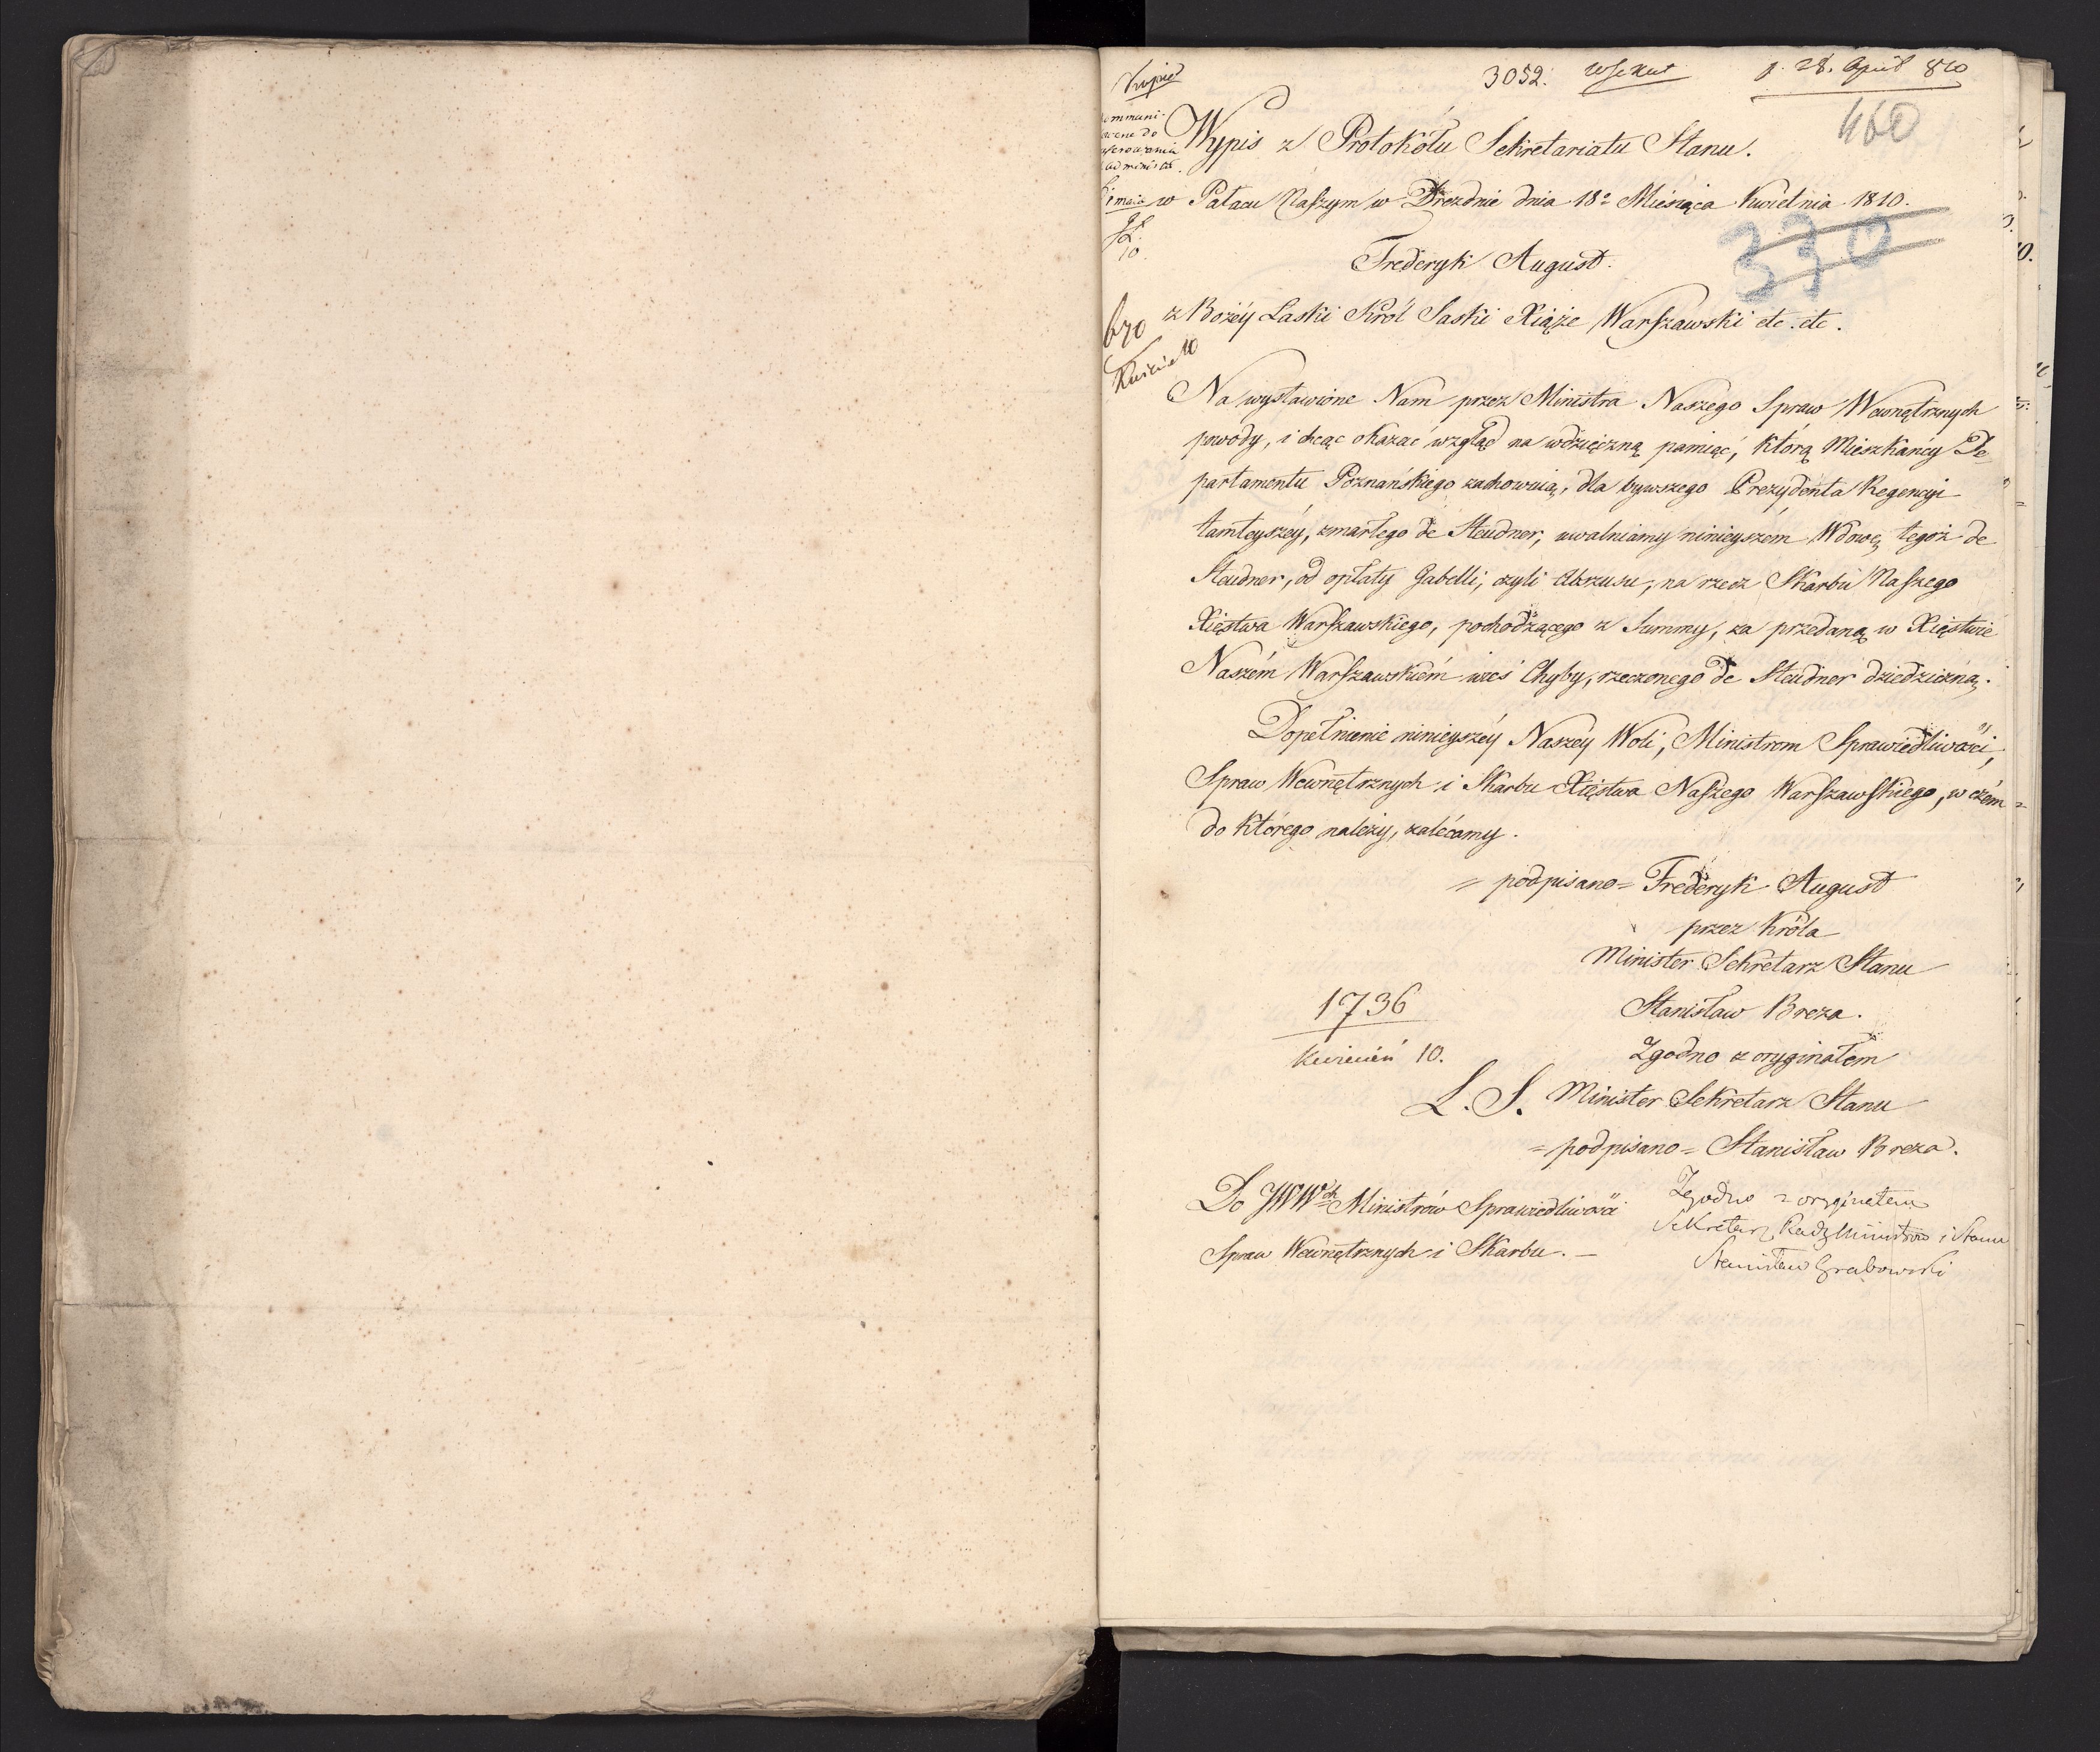 Kopia
3052.
p. 28. April 810
460
Wypis z Protokółu Sekretariatu Stanu.
w Pałacu Naszym w Dreznie dnia 18º Miesiąca Kwietnia 1810.
330
Frederyk August.
z Bożéy Laski Król Saski Xiąże Warszawski etc. etc.
670
Kwiecia 10
Na wystawione Nam przez Ministra Naszego Spraw Wewnętrznych
powody, i chcąc okazać wzgląd na wdzięczną pamięć, którą Mieszkańcy De
partamentu Poznańskiego zachowuią, dla bywszego Prezydenta Regencyi
tamteyszéy, zmarłego de Steudner, uwalniamy ninieyszém Wdowę tegoż de
Steudner, od opłaty Gabelli, czyli Abszusu, na rzecz Skarbu Naszego
Xięstwa Warszawskiego, pochodzącego z Summy, za przedaną w Xięstwie
Naszém Warszawskiém wieś Chyby, rzeczonego de Steudner dziedziczną.
Dopełnienie ninieyszéy Naszéy Woli, Ministrom Sprawiedliwości,
Spraw Wewnętrznych i Skarbu Xięstwa Naszego Warszawskiego, w czém
do którego należy, zalécamy.
= podpisano = Frederyk August
przez Króla
Minister Sekretarz Stanu
1736
Stanisław Breza.
Kwiecień 10.
Zgodno z oryginałem
L. S. Minister Sekretarz Stanu
= podpisano = Stanisław Breza.
Do JWWch Ministrów Sprawiedliwości
Spraw Wewnętrznych i Skarbu. —
Zgodno z oryginałem
Sekretarz Rady Ministrów i Stanu
Stanisław Grabowski